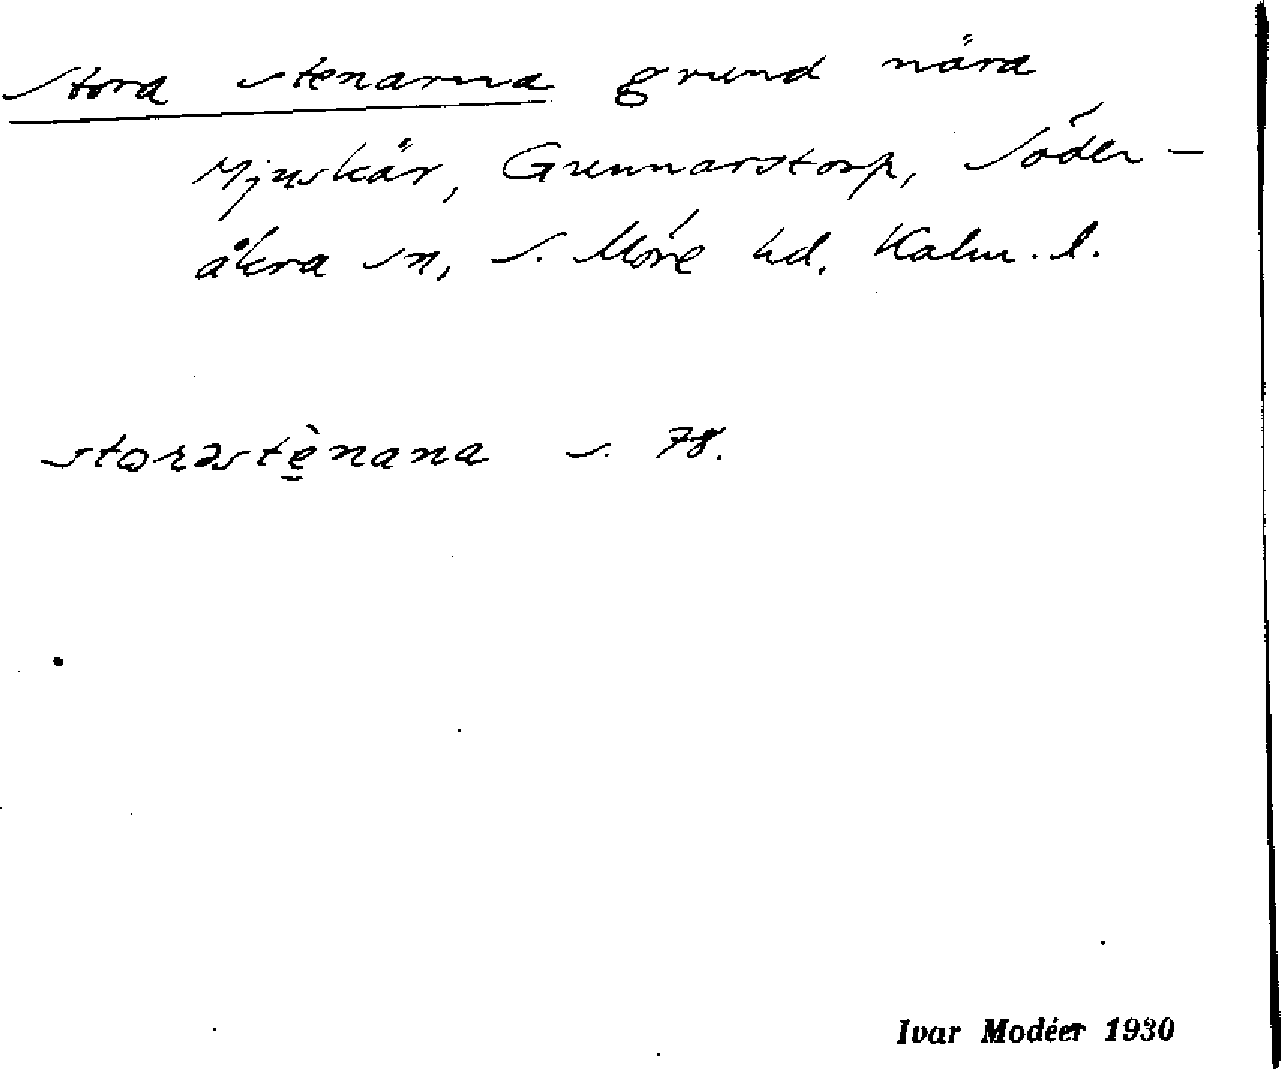 Stora stenarna grund nära
Mjuskär, Gunnarstorp, Söder-
åkra sn, S. Möre hd. Kalm. l.
storəstè̱nana s. 78.
Ivar Modéer 1930